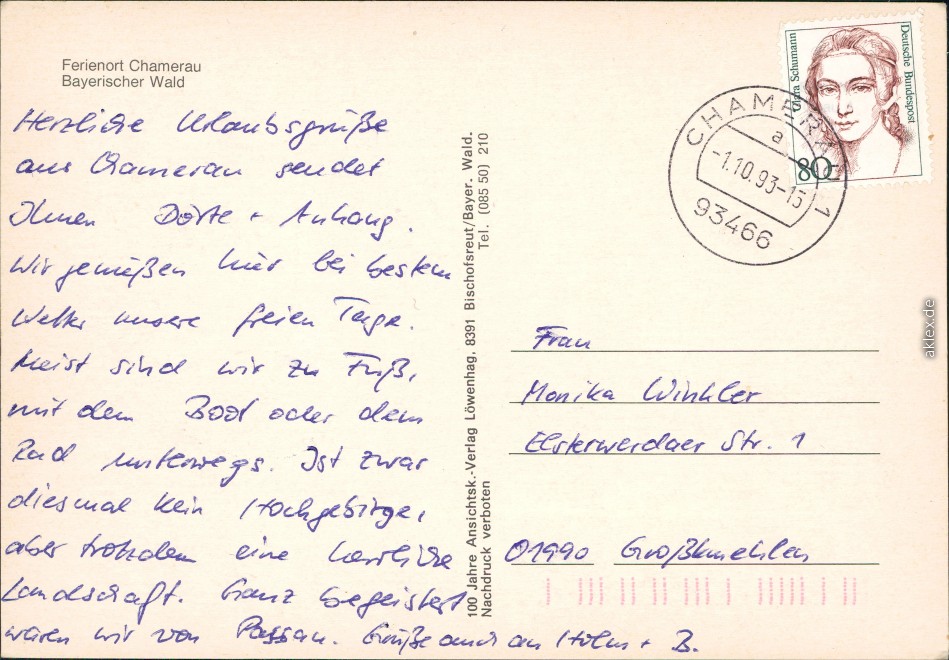 Ferienort Chamerau
Bayerischer Wald
Herzliche Urlaubsgrüße
aus Chamerau sendet
Ihnen Dörte + Anhang.
Wir genießen hier bei bestem
Wetter unsere freien Tage.
Meist sind wir zu Fuß,
mit dem Boot oder dem
Rad unterwegs. Ist zwar
diesmal kein Hochgebirge,
aber trotzdem eine herrliche
Landschaft. Ganz begeistert
waren wir von Passau. Grüße auch an Holm + B.
100 Jahre Ansichtsk.-Verlag Löwenhag, 8391 Bischofsreut/Bayer. Wald.
Nachdruck verboten Tel. (085 50) 210
Clara Schumann
Deutsche Bundespost
80
CHAMERAU 1
a
-1.10.93-15
93466
Frau
Monika Winkler
Elsterwerdaer Str. 1
01990 Großkmehlen
aklex.de